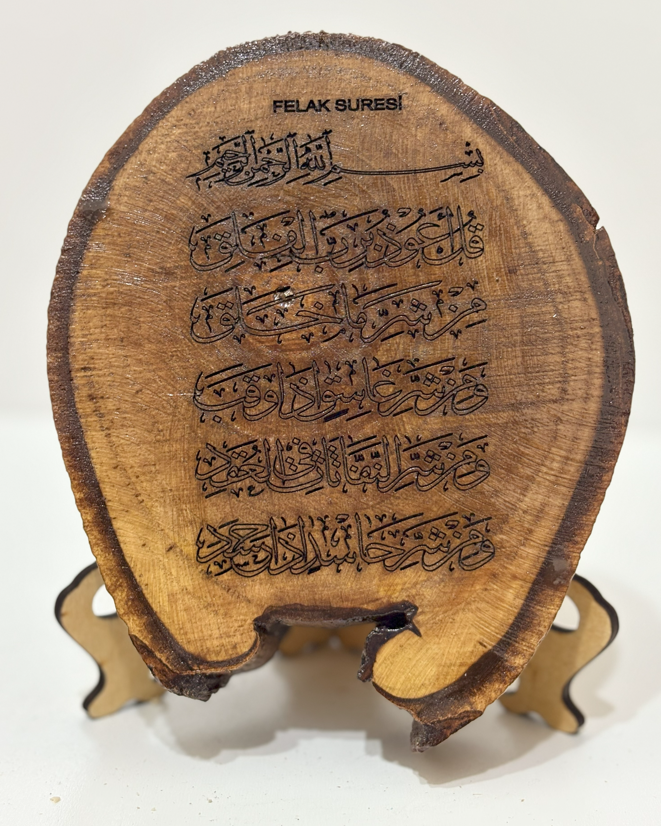 FELAK SURESİ
بِسْمِ اللَّهِ الرَّحْمَنِ الرَّحِيمِ
قُلْ أَعُوذُ بِرَبِّ الْفَلَقِ
مِنْ شَرِّ مَا خَلَقَ
وَمِنْ شَرِّ غَاسِقٍ إِذَا وَقَبَ
وَمِنْ شَرِّ النَّفَّاثَاتِ فِي الْعُقَدِ
وَمِنْ شَرِّ حَاسِدٍ إِذَا حَسَدَ